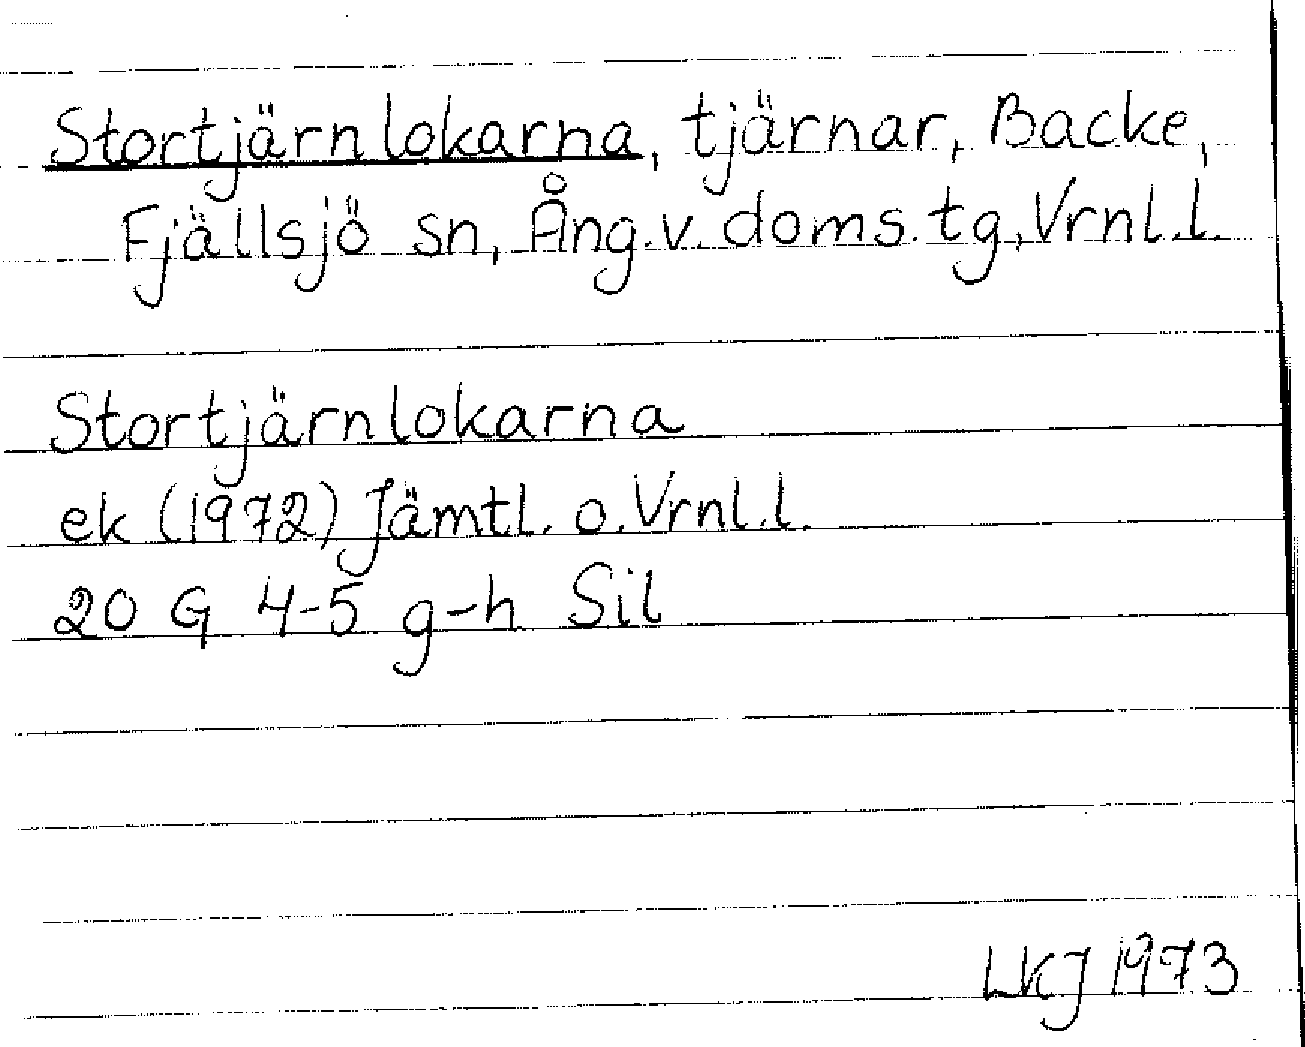 Stortjärnlokarna, tjärnar, Backe,
Fjällsjö sn, Ång.v. doms.tg, Vrnl.l.
Stortjärnlokarna
ek (1972) Jämtl. o. Vrnl.l.
20 G 4-5 g-h Sil
LKJ 1973